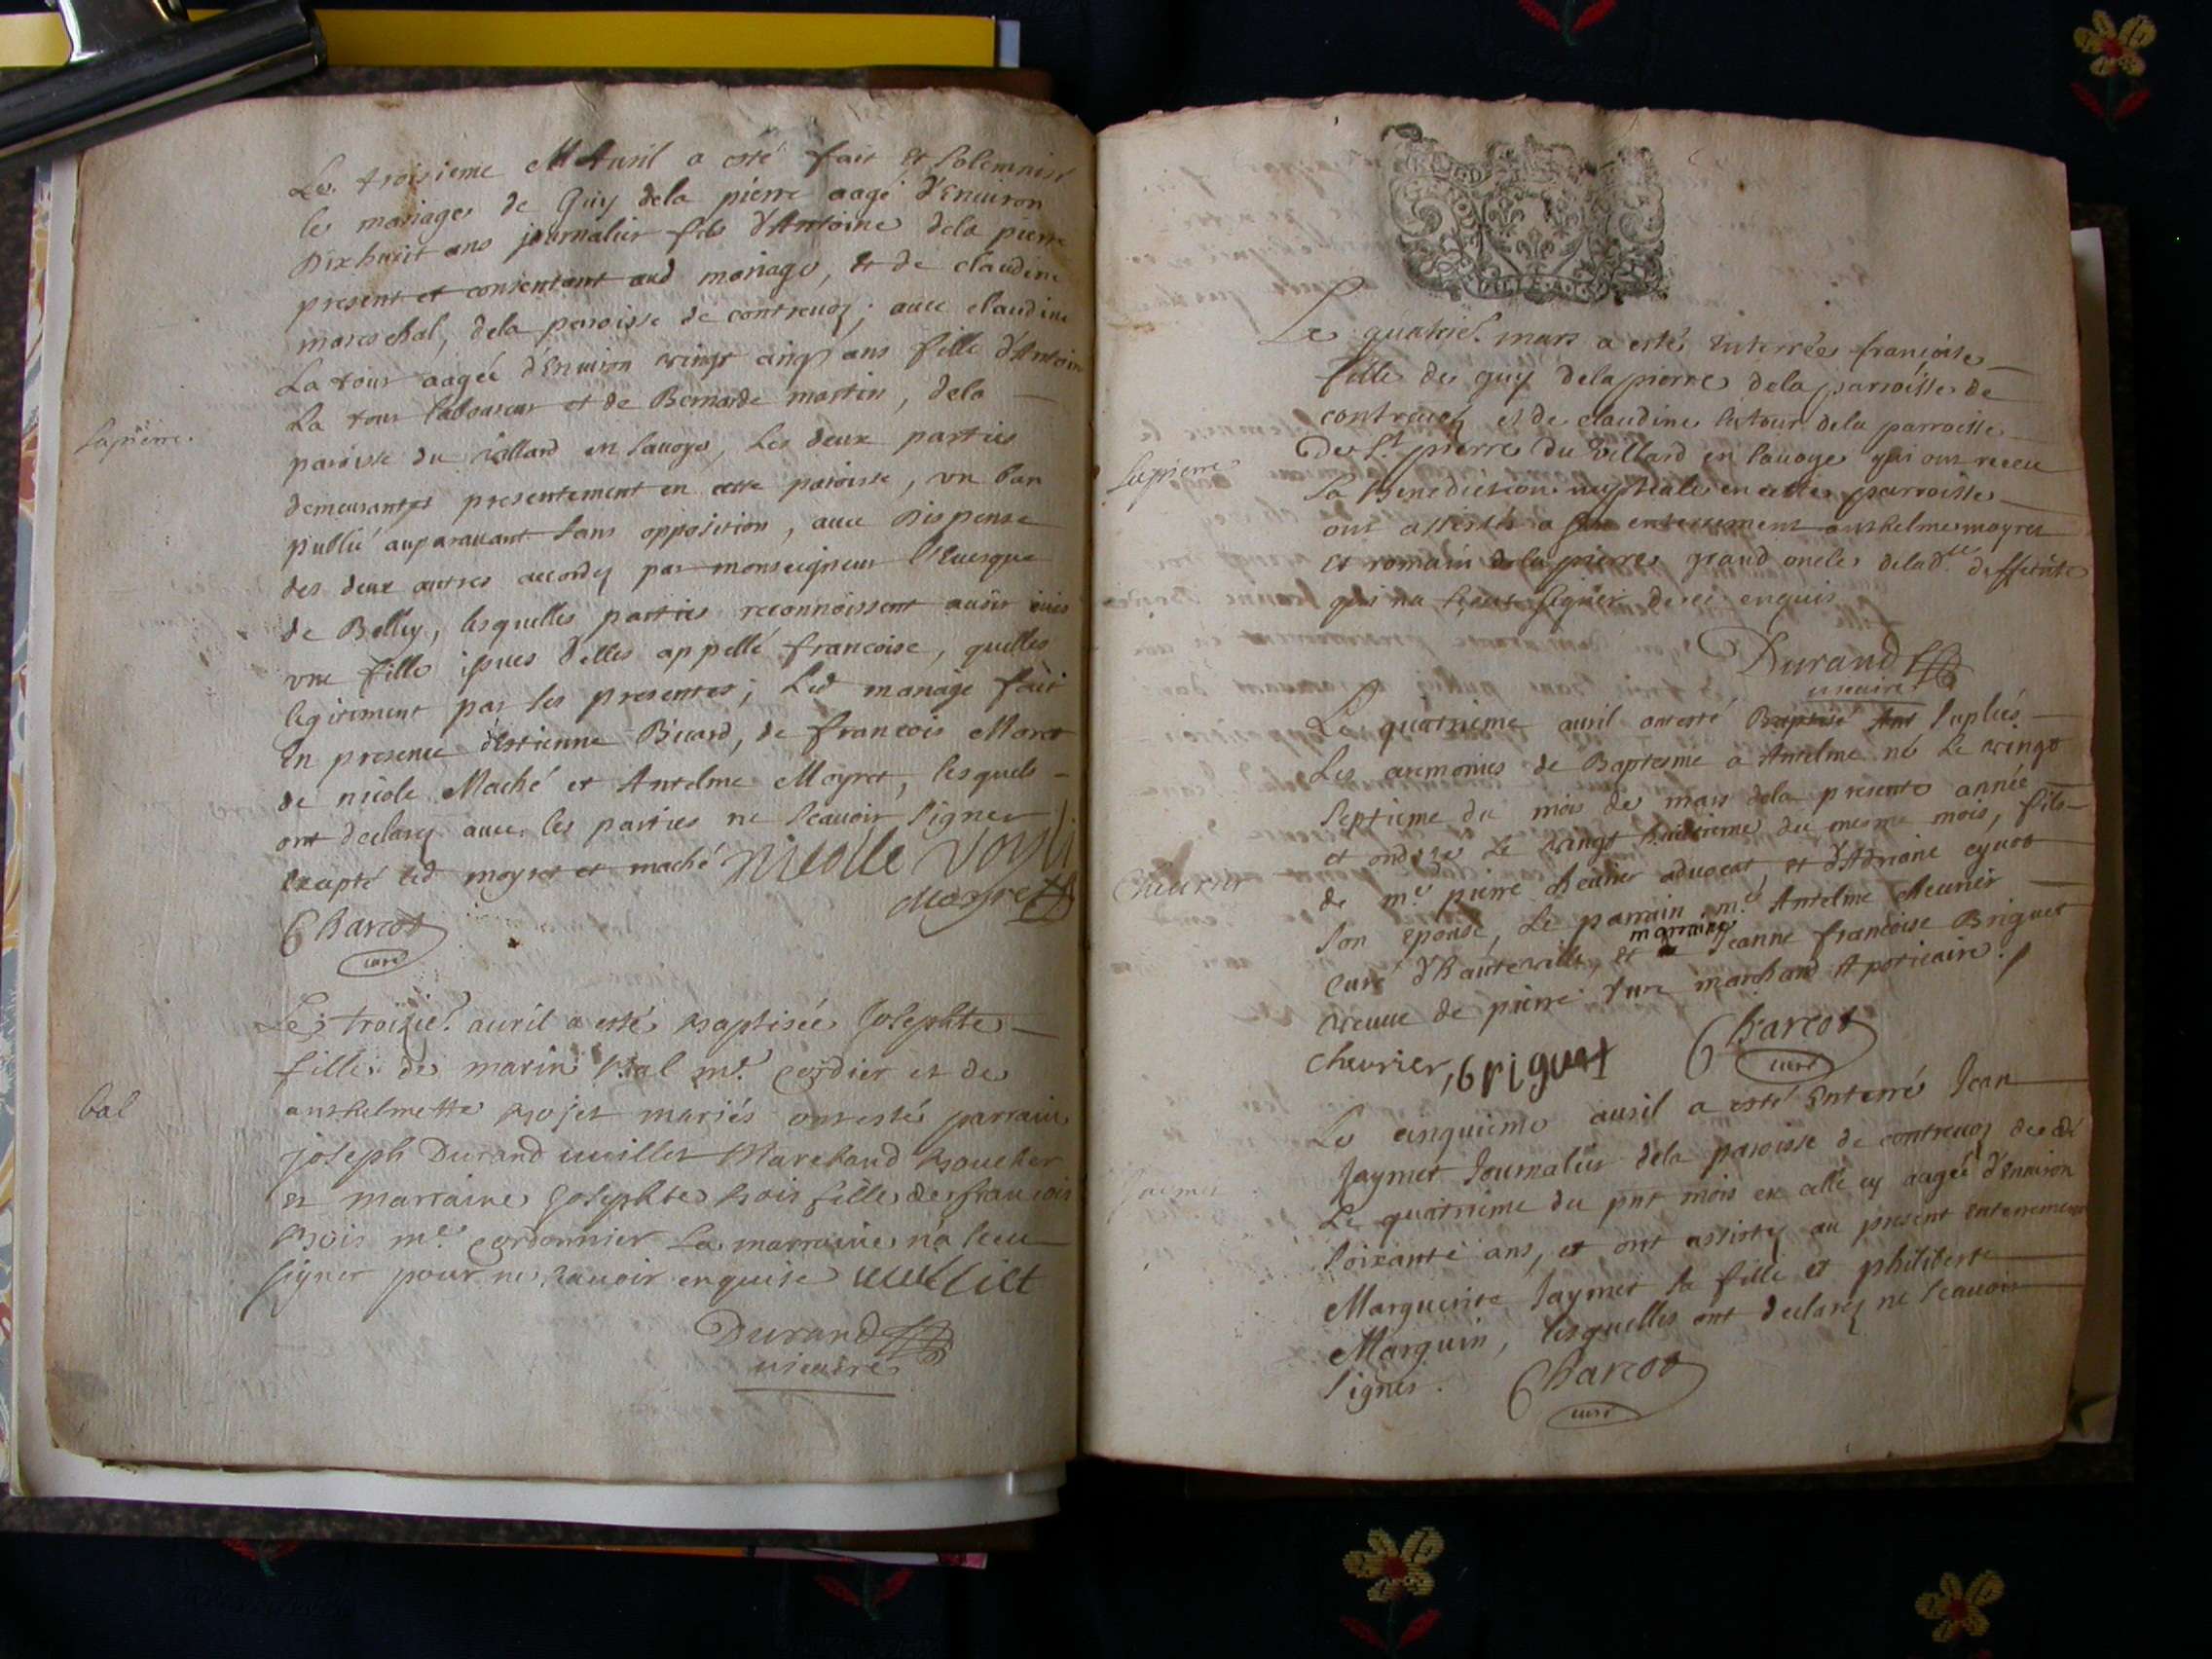 Le troisieme Avril a esté fait et solemnisé
le mariage de Guy dela pierre aagé d'Enuiron
Dixhuit ans journalier fils d'Antoine dela pierre
present et consentant aud mariage, et de claudine
mareschal, dela paroisse de contreuoz; auec claudine
La tour aagée d'Enuiron vingt cinq ans fille d'Antoine
La tour laboureur et de Bernarde martin, dela
paroisse du villard en sauoye, Les deux parties
lapierre.
demeurantes presentement en cette paroisse, vn ban
publié auparauant sans opposition, auec Dispense
des deux autres accordez par monseigneur l'Euesque
de Belley, lesquelles parties reconnoissent
vne fille issues d'elles appellé francoise, quelles
legitiment par les presentes; Led mariage fait
En presence d'estienne Bicard, de francois Moret
de nicole Maché et Antelme Moyret, lesquels
ont declarez auec les parties ne scauoir signer
Excepté led moyret et maché nicolle
Moyret
Charcot
curé
Le troisie. auril a esté baptisée Josephte
fille de marin bal me. cordier et de
bal
anthelmette bojet mariés ont esté parrain
joseph Durand uuillet Marchand boucher
et marraine Josephte bois fille de francois
bois me. cordonnier La marraine n'a sceu
signer pour ne scauoir enquise uuilliet
Durand
uicaire
Le quatrie. mars a esté enterrée françoise
fille de guy delapierre dela parroisse de
contreuoz et de claudine latour dela parroisse
De St pierre du villard en sauoye qui ont receu
lapierre
la benediction nuptiale en cette parroisse
ont assistés a son enterrement anthelme moyret
et romain delapierre grand oncle delad.te deffunte
qui na sceut signer de ce enquis
Durand
uicaire
Le quatrieme auril ont esté Baptisé Ant supliés
Les ceremonies de Baptesme a Antelme né Le vingt
septieme du mois de mars dela presente année
et ondoyé Le vingt huictieme du mesme mois, fils
Cheurier
de me. pierre cheurier aduocat, et d'Adriane cynot
son epouse, Le parrain me. Antelme cheurier
curé d'hauteville, et marraine Jeanne francoise Briguet
vreuue de pierre Ture marchand Apoticaire.
chevrier, briguet
Charcot
curé
Le cinquieme auril a esté Enterré Jean
Jaymet Journalier dela paroisse de contreuoz decedé
Jaymet
Le quatrieme du pnt mois aagé d'Enuiron
soixante ans, et ont assistez au present Enterrement
Marguerite Jaymet sa fille et philiberte
Marguin, lesquelles ont declarez ne scauoir
signer.
Charcot
curé